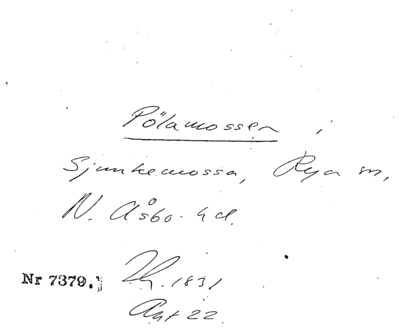 Pölamossen i
Sjunkemossa, Rya sn,
N. Åsbo hd.
Nr 7379. 1831
Akt 22